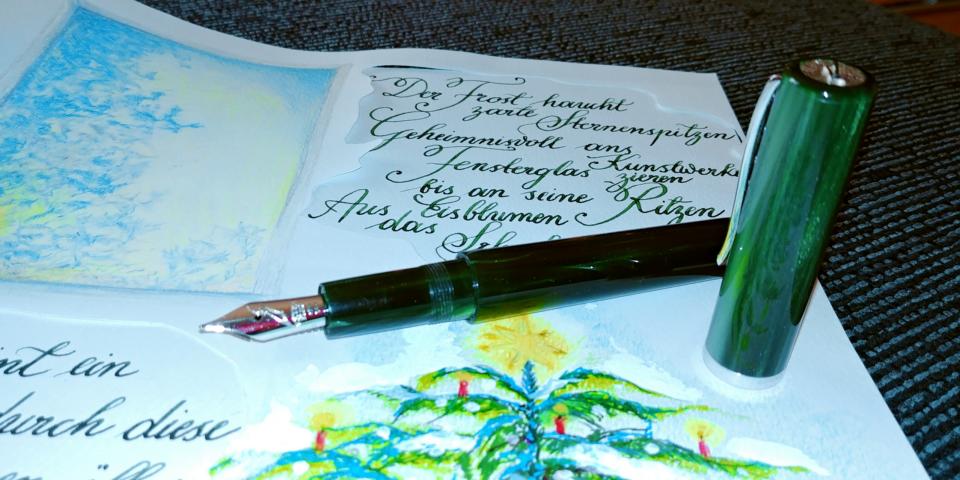 Der Frost haucht
zarte Sternenspitzen
Geheimnisvoll ans
Fensterglas Kunstwerke
zieren
bis an seine Ritzen
Aus Eisblumen
das
ein
durch diese